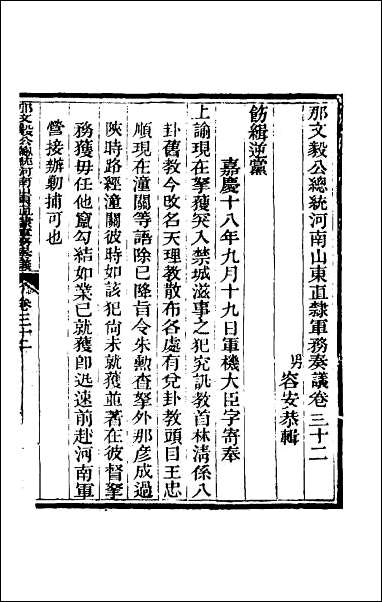 那文毅公總統河南山東直隸軍務奏議卷三十二
男容安恭輯
飭緝逆黨
嘉慶十八年九月十九日軍機大臣字寄奉
上諭現在拏獲突入禁城滋事之犯究訊教首林清係八
卦舊教今改名天理教散布各處有兌卦教頭目王忠
順現在潼關等語除已降旨令朱勲查拏外那彥成過
陝時路經潼關彼時如該犯尚未就獲並著在彼督拏
務獲毋任他竄勾結如業已就獲卽迅速前赴河南軍
營接辦勦捕可也
那文毅公總統河南山東直隸軍務奏議
卷三十二